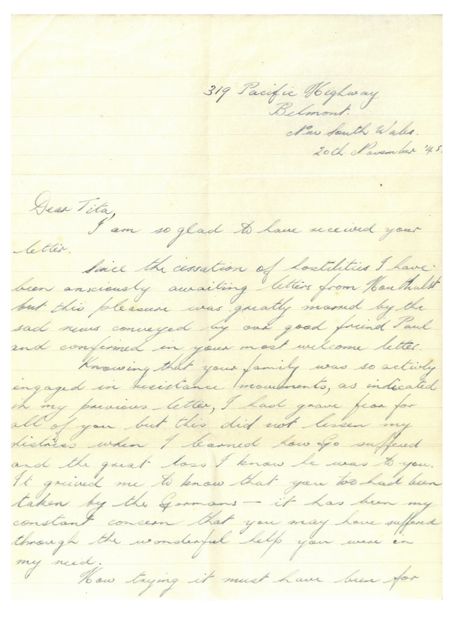 319 Pacific Highway
Belmont.
New South Wales.
20th November '45.
Dear Tita,
I am so glad to have received your
letter.
Since the cessation of hostilities I have
been anxiously awaiting letters from
but this pleasure was greatly marred by the
sad news conveyed by our good friend Paul
and confirmed in your most welcome letter.
Knowing that your family was so actively
engaged in resistance movements, as indicated
in my previous letter, I had grave fear for
all of you but this did not lessen my
distress when I learned how Go suffered
and the great loss I know he was to you.
It grieved me to know that you too had been
taken by the Germans — it has been my
constant concern that you may have suffered
through the wonderful help you were in
my need.
How trying it must have been for